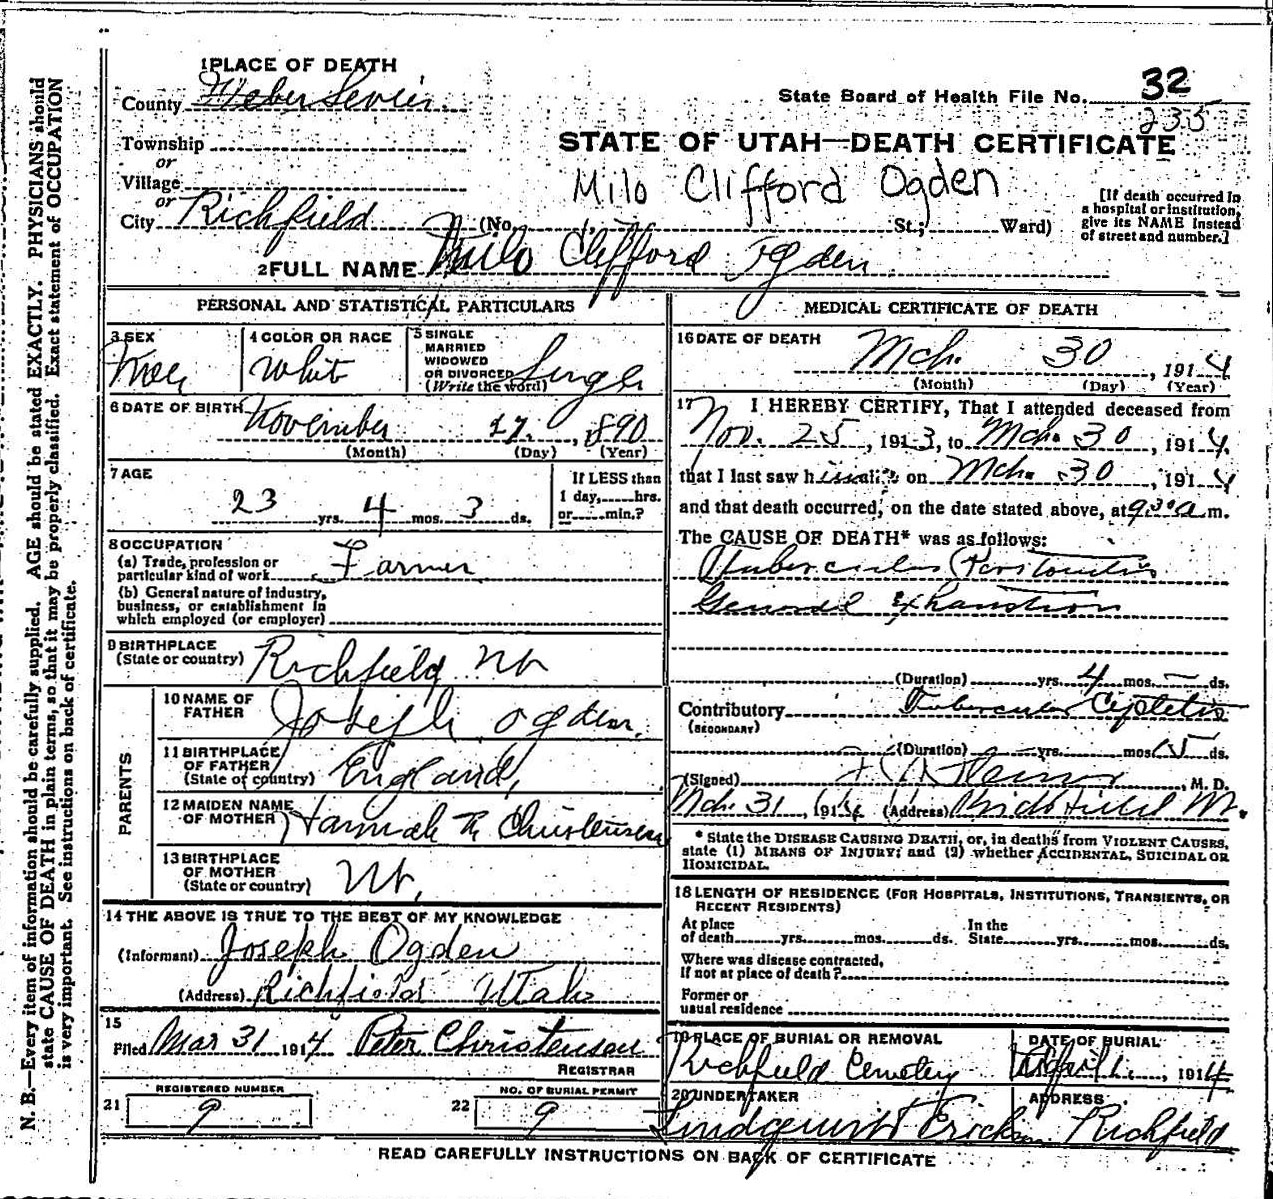 1 PLACE OF DEATH
County Weber Sevier
Township
or
Village
or
City Richfield (No. St.; Ward)
State Board of Health File No. 32
235
STATE OF UTAH—DEATH CERTIFICATE
Milo Clifford Ogden
[If death occurred in
a hospital or institution,
give its NAME instead
of street and number.]
2 FULL NAME Milo Clifford Ogden
PERSONAL AND STATISTICAL PARTICULARS
3 SEX
4 COLOR OR RACE
White
5 SINGLE
MARRIED
WIDOWED
OR DIVORCED
(Write the word) Single
6 DATE OF BIRTH
November 27, 1890
(Month) (Day) (Year)
7 AGE
23 yrs. 4 mos. 3 ds.
If LESS than
1 day, hrs.
or min.?
8 OCCUPATION
(a) Trade, profession or
particular kind of work Farmer
(b) General nature of industry,
business, or establishment in
which employed (or employer)
9 BIRTHPLACE
(State or country) Richfield Ut
PARENTS
10 NAME OF
FATHER Joseph Ogden
11 BIRTHPLACE
OF FATHER
(State or country) England,
12 MAIDEN NAME
OF MOTHER Hannah Christensen
13 BIRTHPLACE
OF MOTHER
(State or country) Ut,
14 THE ABOVE IS TRUE TO THE BEST OF MY KNOWLEDGE
(Informant) Joseph Ogden
(Address) Richfield Utah
15
Filed Mar 31 1914 Peter Christensen
REGISTRAR
REGISTERED NUMBER
21 9
NO. OF BURIAL PERMIT
22 9
MEDICAL CERTIFICATE OF DEATH
16 DATE OF DEATH
Mch. 30, 1914
(Month) (Day) (Year)
17 I HEREBY CERTIFY, That I attended deceased from
Nov. 25, 1913, to Mch. 30, 1914,
that I last saw him alive on Mch. 30, 1914
and that death occurred, on the date stated above, at 9:30 a m.
The CAUSE OF DEATH* was as follows:
Tubercular Peritonitis
General Exhaustion
(Duration) yrs. 4 mos. – ds.
Contributory Tubercular
(SECONDARY)
(Duration) – yrs. mos. 15 ds.
(Signed) M. D.
Mch. 31, 1914 (Address) Richfield Ut.
* State the DISEASE CAUSING DEATH, or, in deaths from VIOLENT CAUSES,
state (1) MEANS OF INJURY; and (2) whether ACCIDENTAL, SUICIDAL OR
HOMICIDAL.
18 LENGTH OF RESIDENCE (FOR HOSPITALS, INSTITUTIONS, TRANSIENTS, OR
RECENT RESIDENTS)
At place
of death yrs. mos. ds.
In the
State yrs. mos. ds.
Where was disease contracted,
if not at place of death?
Former or
usual residence
19 PLACE OF BURIAL OR REMOVAL
Richfield Cemetery
DATE OF BURIAL
April 1, 1914
20 UNDERTAKER
Lindquist Erickson
ADDRESS
Richfield
READ CAREFULLY INSTRUCTIONS ON BACK OF CERTIFICATE
N. B.—Every item of information should be carefully supplied. AGE should be stated EXACTLY. PHYSICIANS should
state CAUSE OF DEATH in plain terms, so that it may be properly classified. Exact statement of OCCUPATION
is very important. See instructions on back of certificate.